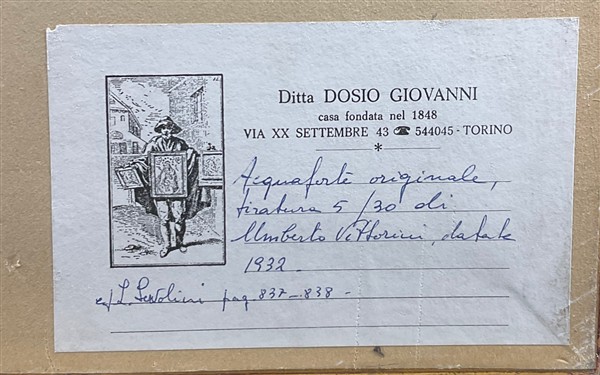 Ditta DOSIO GIOVANNI
casa fondata nel 1848
VIA XX SETTEMBRE 43 ☎ 544045 - TORINO
*
Acquaforte originale,
tiratura 5/30 di
Umberto Vittorini, datata
1932.
cf L. Servolini pag. 837-838-